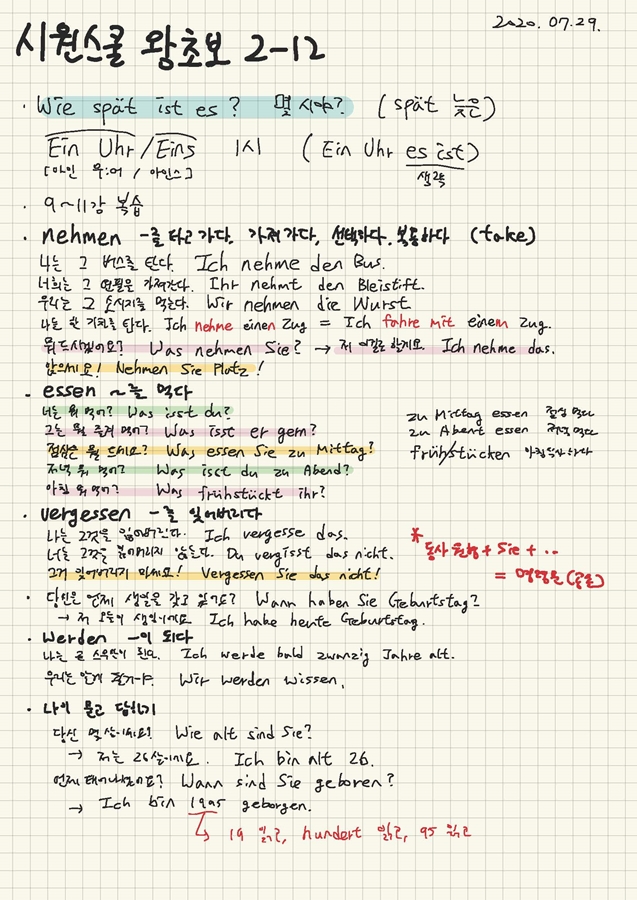 2020. 07. 29.
시원스쿨 왕초보 2-12
· Wie spät ist es? 몇 시야? (spät 늦은)
Ein Uhr / Eins 1시 (Ein Uhr es ist)
[아인 우:어 / 아인스] 생략
· 9~11강 복습
· nehmen -를 타고 가다. 가져가다, 선택하다. 복용하다 (take)
나는 그 버스를 탄다. Ich nehme den Bus.
너희는 그 연필을 가져간다. Ihr nehmt den Bleistift.
우리는 그 소시지를 먹는다. Wir nehmen die Wurst
나는 한 기차를 탄다. Ich nehme einen Zug = Ich fahre mit einem Zug.
뭐드시겠어요? Was nehmen Sie? → 저 이걸로 할게요. Ich nehme das.
앉으세요! Nehmen Sie Platz!
- essen ~를 먹다
너는 뭐 먹어? Was isst du?
그는 뭘 즐겨 먹어? Was isst er gern?
점심은 뭘 드세요? Was essen Sie zu Mittag?
저녁 뭐 먹어? Was isst du zu Abend?
아침 뭐 먹어? Was frühstückt ihr?
zu Mittag essen 점심 먹다
zu Abent essen 저녁 먹다
früh/stücken 아침식사하다
· vergessen -를 잊어버리다
나는 그것을 잊어버린다. Ich vergesse das.
너는 그것을 잊어버리지 않는다. Du vergisst das nicht.
그거 잊어버리지 마세요! Vergessen Sie das nicht!
* 동사 원형 + Sie + ..
= 명령문 (공손)
· 당신은 언제 생일을 갖고 있어요? Wann haben Sie Geburtstag?
→ 저 오늘이 생일이에요. Ich habe heute Geburtstag.
· Werden -이 되다
나는 곧 스무살이 된다. Ich werde bald zwanzig Jahre alt.
우리는 알게 될거야. Wir werden wissen.
· 나이 묻고 답하기
당신 몇 살이에요? Wie alt sind Sie?
→ 저는 26살이에요. Ich bin alt 26.
언제 태어나셨어요? Wann sind Sie geboren?
→ Ich bin 1995 geborgen.
↳ 19 읽고, hundert 읽고, 95 읽고